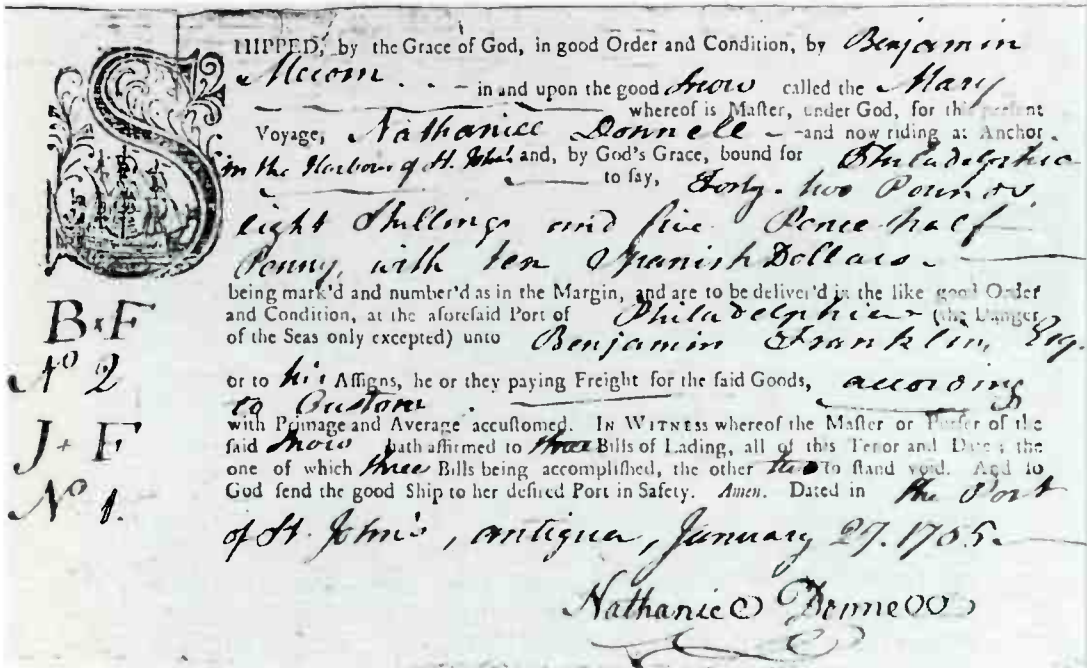 SHIPPED, by the Grace of God, in good Order and Condition, by Benjamin
Mecom - in and upon the good Snow called the Mary
whereof is Maſter, under God, for this preſent
Voyage, Nathaniell Donnell - and now riding at Anchor
in the Harbour of St. John's and, by God's Grace, bound for Philadelphia
to ſay, Forty-two Pounds
eight Shillings and five Pence half
Penny, with ten Spanish Dollars.
being mark'd and number'd as in the Margin, and are to be deliver'd in the like good Order
and Condition, at the aforeſaid Port of Philadelphia (the Danger
of the Seas only excepted) unto Benjamin Franklin, Esq.
or to his Aſſigns, he or they paying Freight for the ſaid Goods, according
to Custom.
with Primage and Average accuſtomed. IN WITNESS whereof the Maſter or Purſer of the
ſaid Snow hath affirmed to three Bills of Lading, all of this Tenor and Date; the
one of which three Bills being accompliſhed, the other two to ſtand void. And ſo
God ſend the good Ship to her deſired Port in Safety. Amen. Dated in the Port
of St. John's, Antigua, January 27. 1755.
Nathaniel Donnell
B+F
No 2
J+F
No 1.